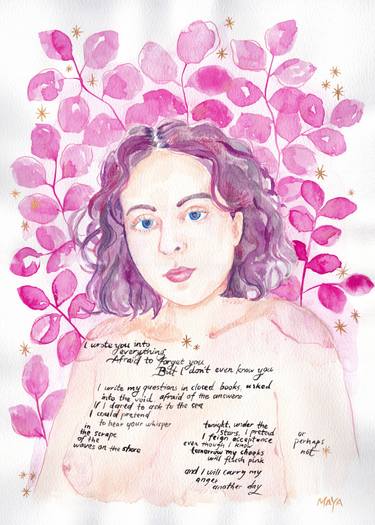 I wrote you into
everything
Afraid to forget you
But I don't even know you
I write my questions in closed books, asked
into the void, afraid of the answers
If I dared to ask to the sea
I could pretend
to hear your whisper
in
the scrape
of the
waves on the shore
tonight, under the
stars, I pretend
I feign acceptance
even though I know
tomorrow my cheeks
will flush pink
and I will carry my
anger
another day
or
perhaps
not
MAYA